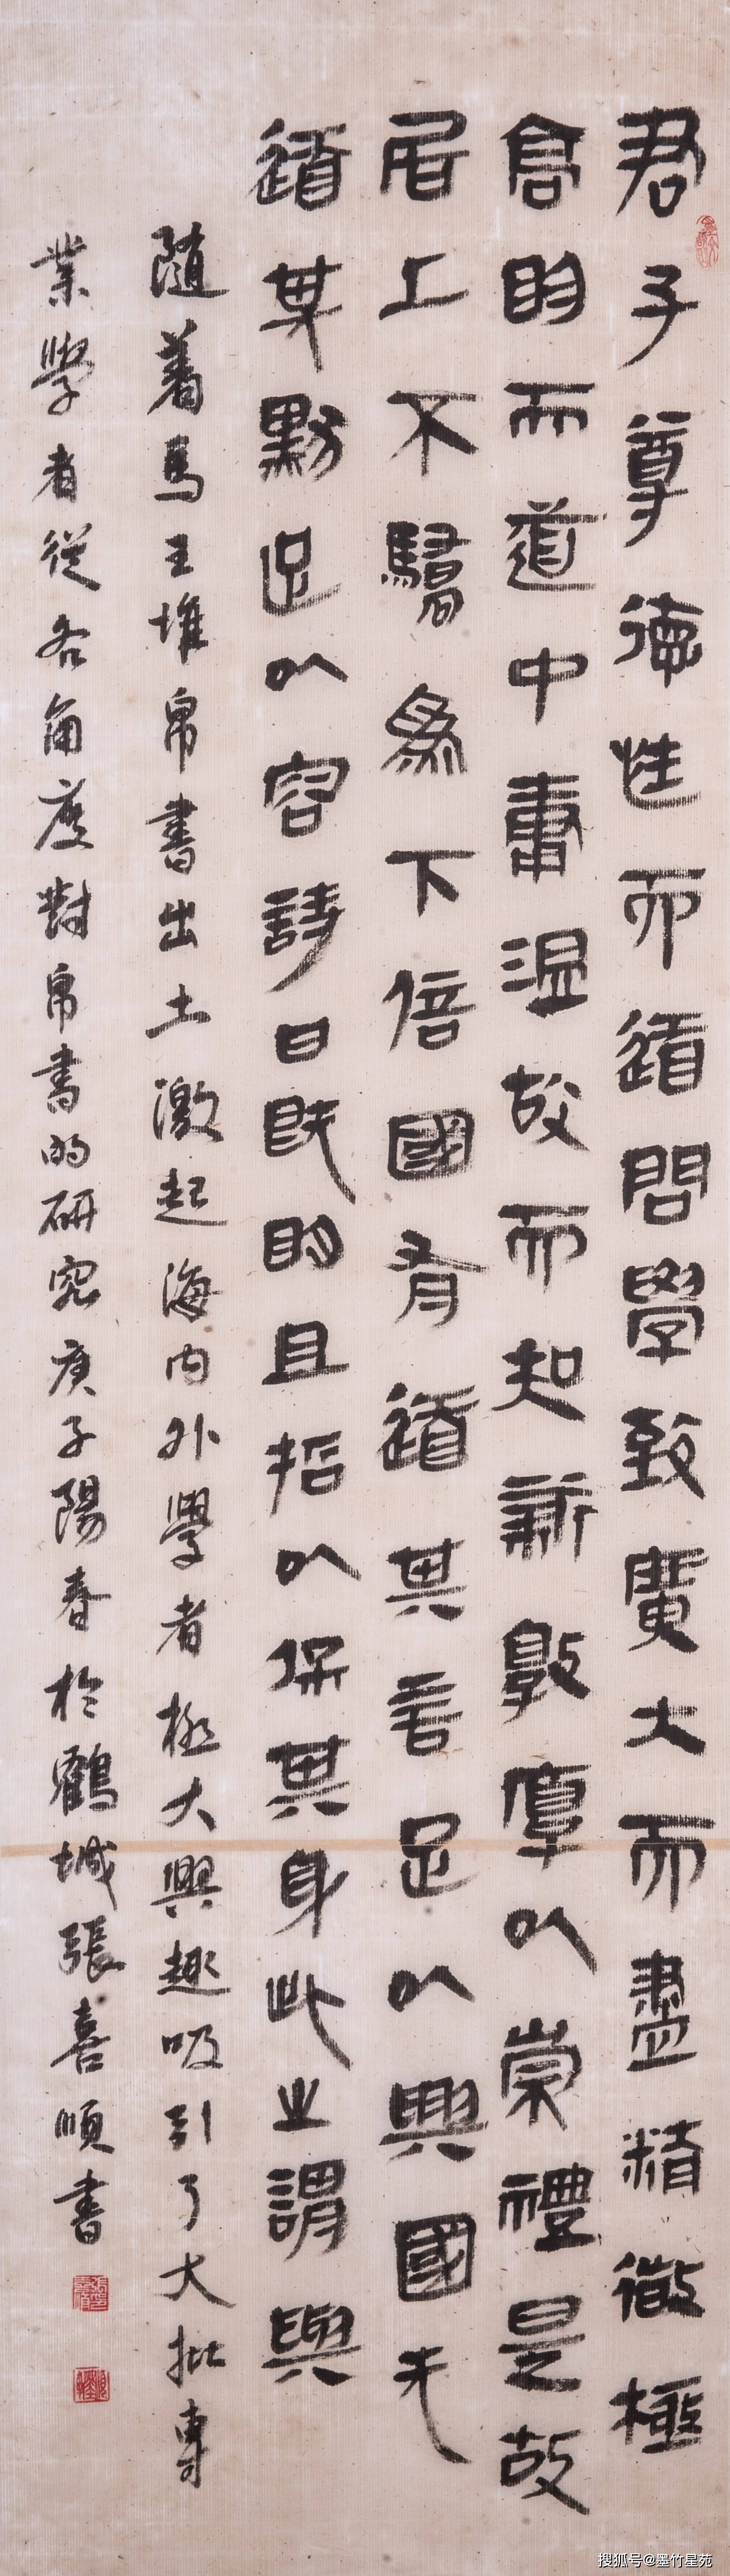 君子尊德性而道問學致廣大而盡精微極
高明而道中庸温故而知新敦厚以崇禮是故
居上不驕爲下倍國有道其言足以興國无
道其默足以容詩曰既明且哲以保其身此之謂與
隨着馬王堆帛書出土激起海内外學者極大興趣吸引了大批專
業學者從各角度對帛書的研究庚子陽春於鶴城張喜順書
搜狐号@墨竹星苑